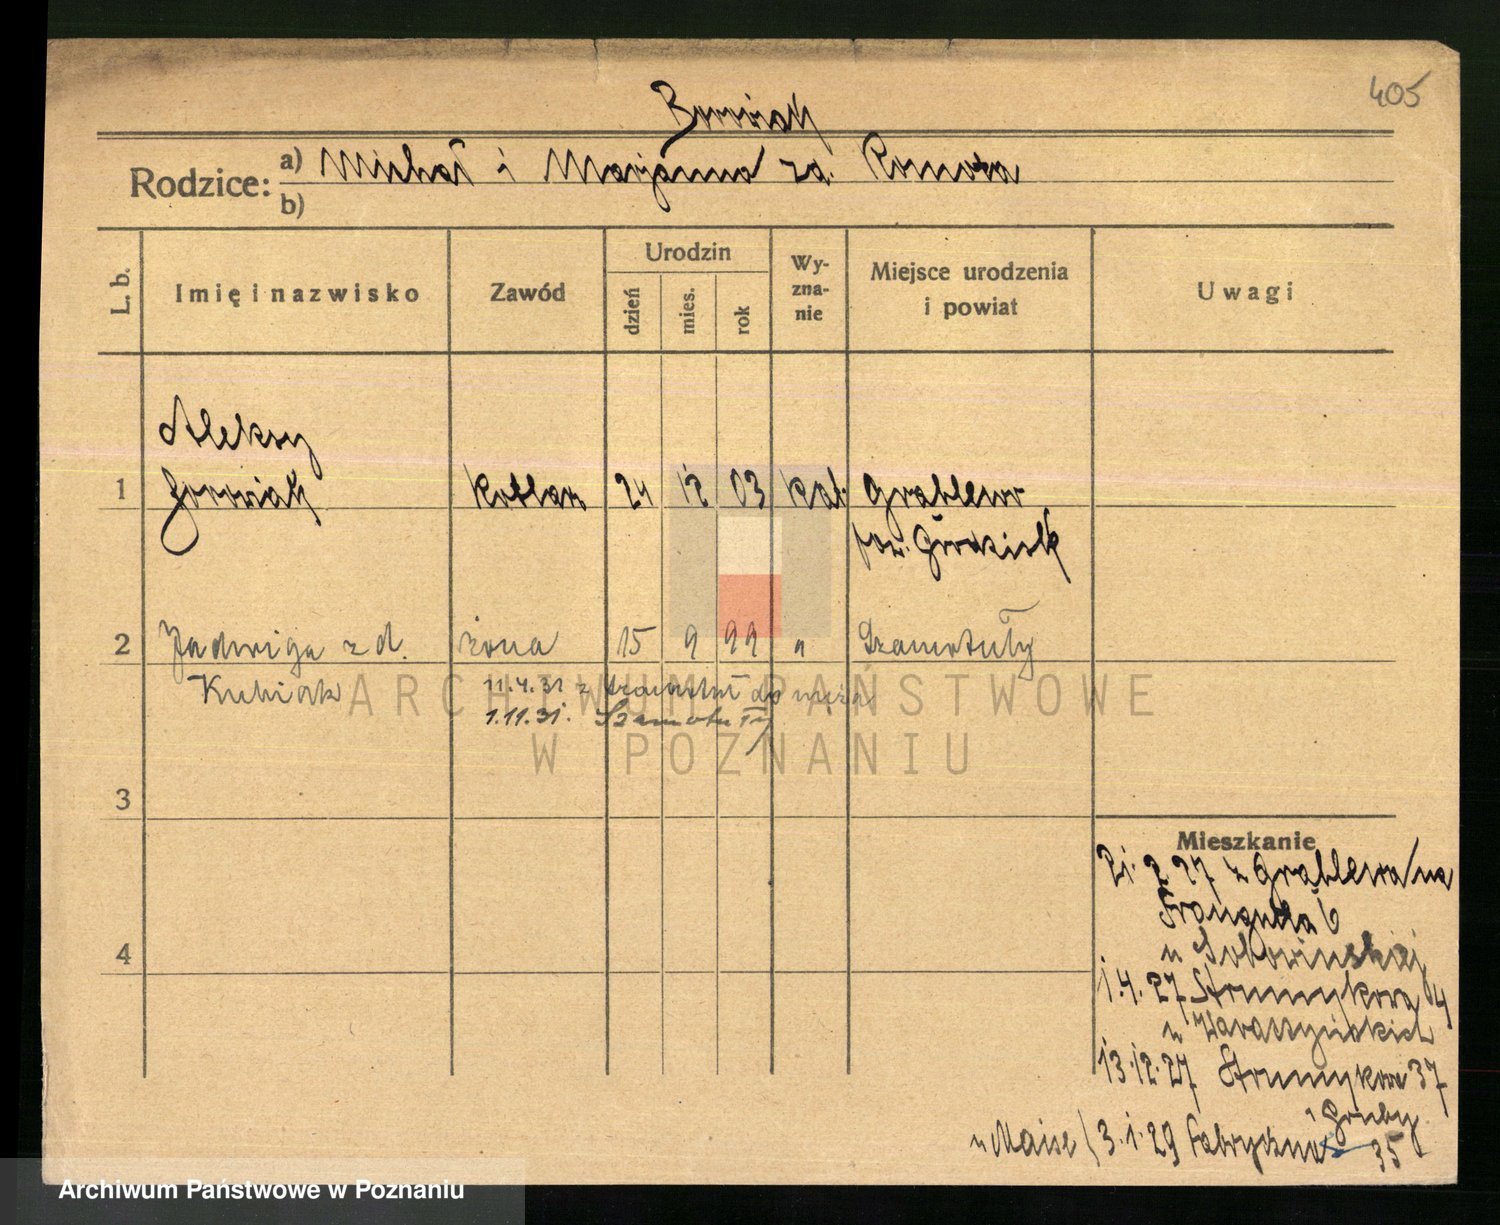 405
Borowiak
Rodzice: a) Michał i Marjanna za. Ponota
b)
L. b.
Imię i nazwisko
Zawód
Urodzin
dzień
mies.
rok
Wy-
zna-
nie
Miejsce urodzenia
i powiat
Uwagi
Aleksy
1 Borowiak kotlarz 24 12 03 kat. Grąblewo
pow. Grodzisk
2 Jadwiga z d. żona 15 9 99 " Szamotuły
Kubiak 11.4.31 z Szamotuł do męża
1.11.31. Szamotuły
3
4
Mieszkanie
21. 2 27 z Grąblewa na
6
u
1.4.27 Strumykowa 4
u
13.12.27 Strumykowa 37
3.1.29 Fabryczna 35
ARCHIWUM PAŃSTWOWE
W POZNANIU
Archiwum Państwowe w Poznaniu